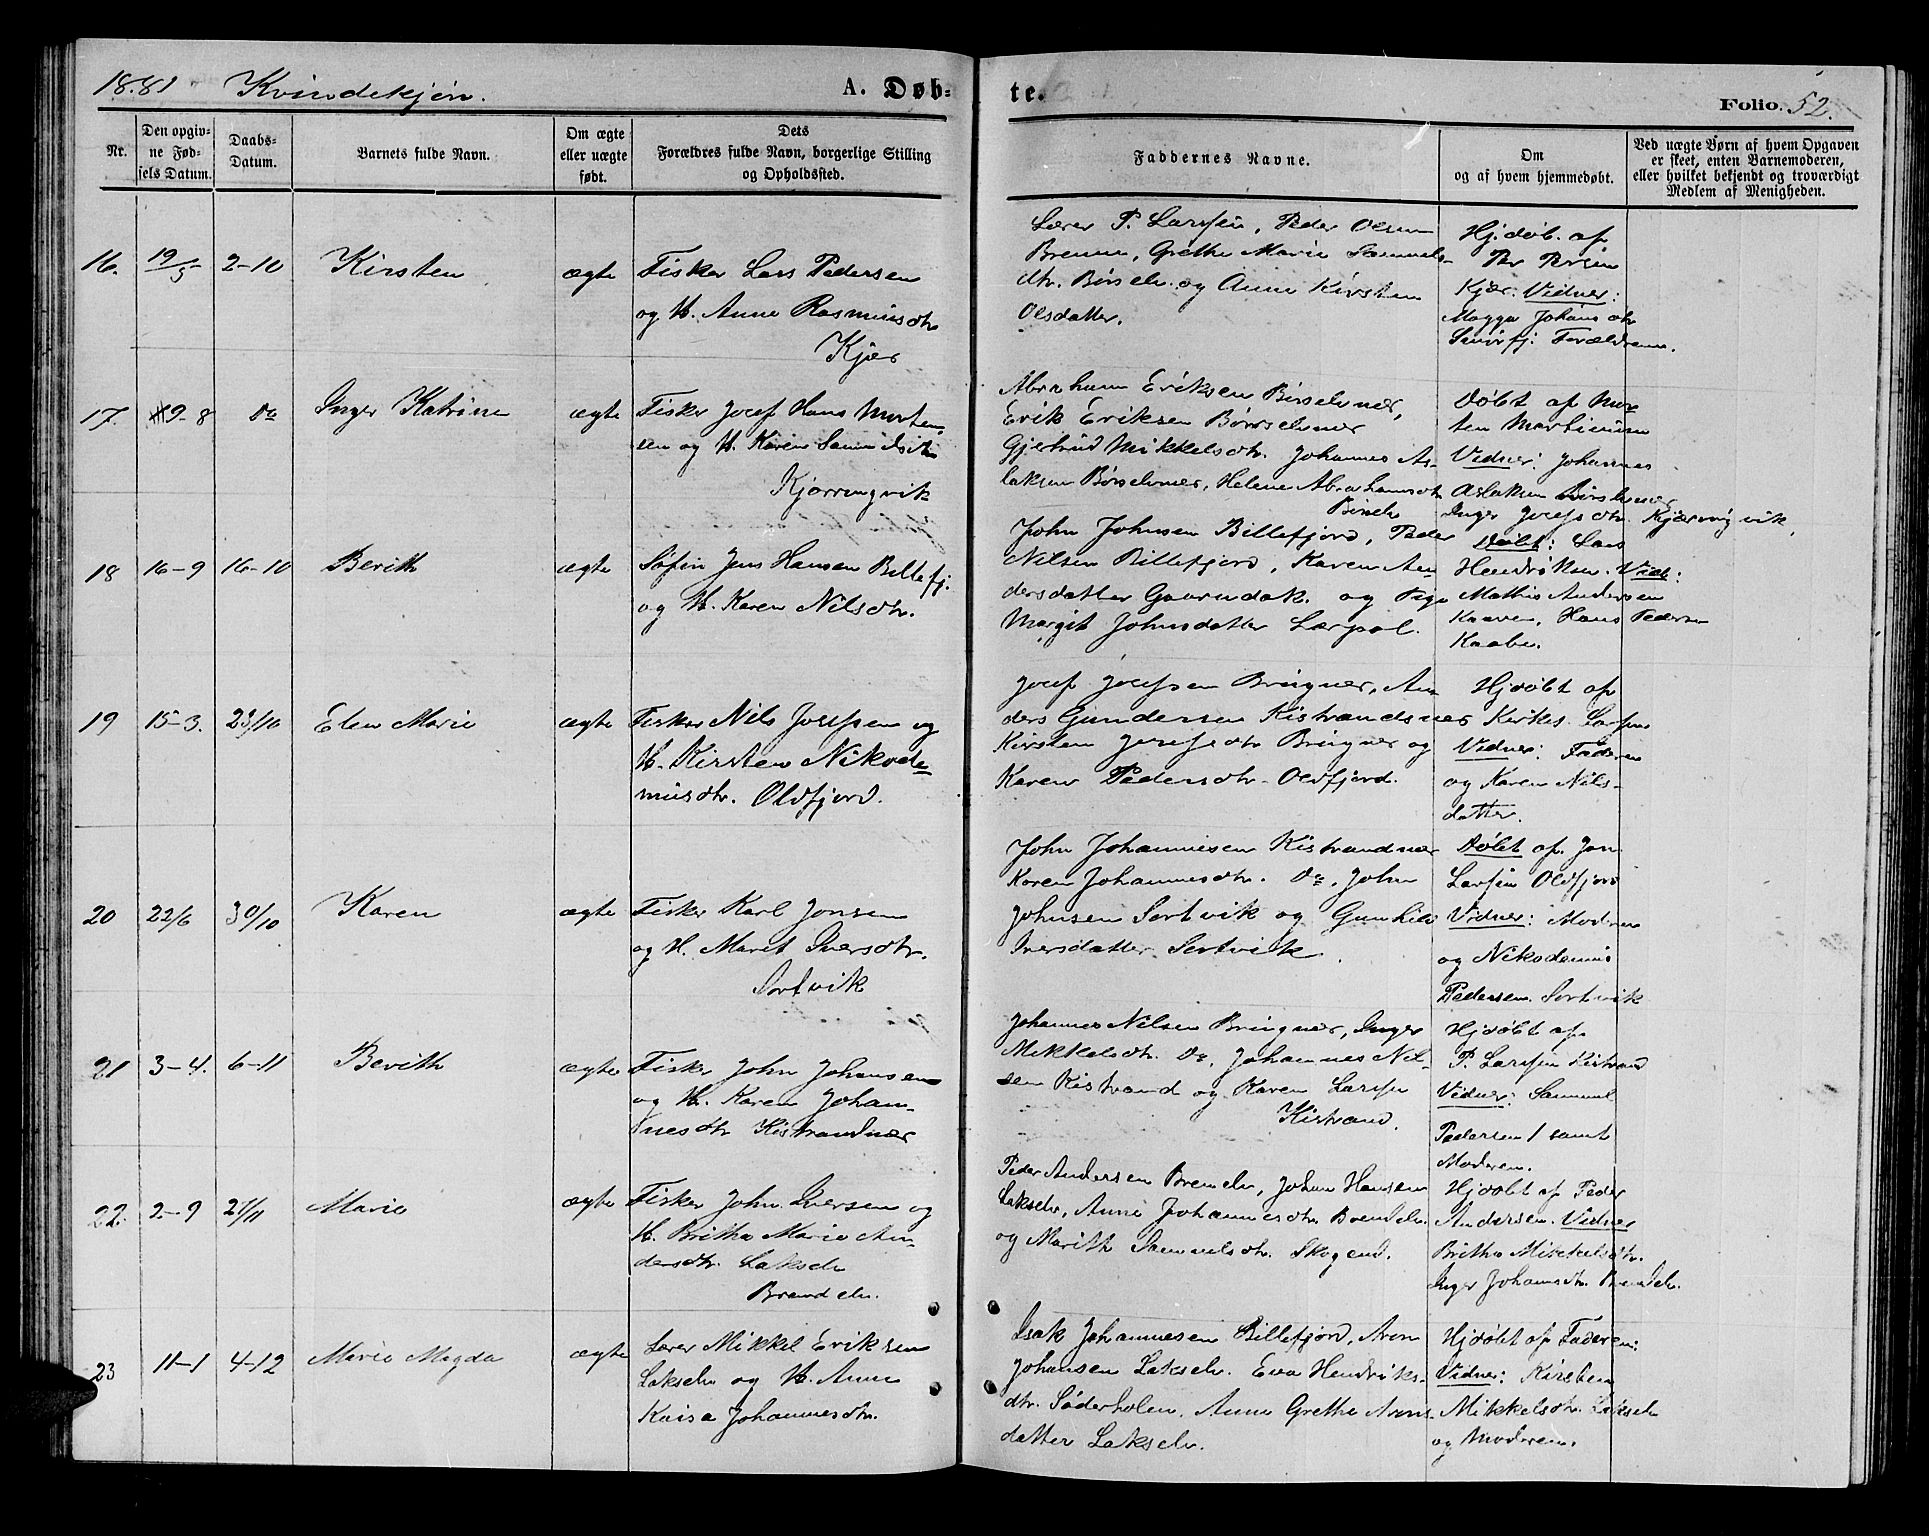 1881 Kvindekjøn.
A. Døb-
te.
Folio. 52.
Nr.
Den opgiv-
ne Fød-
sels Datum.
Daabs-
Datum.
Barnets fulde Navn.
Om ægte
eller uægte
født.
Dets
Forældres fulde Navn, borgerlige Stilling
og Opholdssted.
Faddernes Navne.
Om
og af hvem hjemmedøbt.
Ved uægte Børn af hvem Opgaven
er skeet, enten Barnemoderen,
eller hvilket bekjendt og troværdigt
Medlem af Menigheden.
16. 19/5 2-10 Kirsten ægte
Fisker Lars Pedersen
og H. Anne Rasmusdtr
Kjær
Lærer P. Larssen, Peder Olsen
Brenne, Grethe Marie Samuels-
dtr. Børselv og Anne Kirsten
Olsdatter.
Hj.døb. af
Per Persen
Kjær. Vidner:
Magga Johansdtr
Smørfj. Forældrene.
17. 9-8 Do Inger Katrine ægte
Fisker Josef Hans Morten-
sen og H. Karen Samuelsdtr
Kjærringvik
Abraham Eriksen Børselvnær,
Erik Eriksen Børselvnær
Gjertrud Mikkelsdtr. Johannes As-
laksen Børselvnær, Helene Abrahamsdtr
Børselv
Døbt af Mor
ten Mortensen
Vidner: Johannes
Aslaksen Børselvnær
Inger Josefsdtr. Kjærringvik,
18 16-9 16-10 Berith ægte
Søfin Jens Hansen Billefj.
og H. Karen Nilsdtr.
John Johnsen Billefjord, Peder
Nilsen Billefjord, Karen An-
dersdatter og Pige
Margit Johnsdatter
Døbt: Lars
Hendriksen. Vid:
Mathis Andersen
Hans Pedersen
19 15-3. 23/10 Elen Marie ægte
Fisker Nils Josefsen og
H. Kirsten Nikode-
musdtr. Oldfjord.
Josef Josefsen Bringnær, An
ders Gundersen Kistrandsnær
Kirsten Josefsdtr Bringnær og
Karen Pedersdtr. Oldfjord.
Hjdøbt af
Kirkes. Larssen
Vidner: Faderen
og Karen Nils-
datter.
20 22/6 30/10 Karen ægte
Fisker Karl Jonsen
og H. Marit Iversdtr.
Sortvik
John Johannesen Kistrandnær
Karen Johannesdtr. Do, John
Johnsen Sortvik og Gunhild
Iversdatter Sortvik.
Døbt af Jon
Larsen Oldfjord
Vidner: Moderen
og Nikodemus
Pedersen. Sortvik
21 3-4. 6-11 Berith ægte
Fisker John Johansen
og H. Karen Johan-
nesdtr Kistrandnær
Johannes Nilsen Bringnær, Inger
Mikkelsdtr. Do, Johannes Nil-
sen Kistrand og Karen Larssen
Kistrand.
Hjdøbt af
P. Larssen Kistrand
Vidner: Samuel
Pedersen / samt
Moderen.
22. 2-9 27/11 Marie ægte
Fisker John Iversen og
H. Britha Marie An-
dersdtr. Lakselv
Brendelv.
Peder Andersen Brendelv, Johan Hansen
Lakselv, Anne Johannesdtr. Brendelv
og Marith Samuelsdtr. Skogend.
Hjdøbt af Peder
Andersen. Vidner
Britha Mikkelsdtr.
Inger Johansdtr. Brendelv.
23 11-1 4-12 Marie Magda ægte
Lærer Mikkel Eriksen
Lakselv og H. Anne
Kaisa Johannesdtr.
Isak Johannesen Billefjord, Aron
Johansen Lakselv. Eva Hendriks-
dtr. Søderholen, Anne Grethe Arons-
datter Lakselv.
Hjdøbt af Faderen:
Vidner: Kirsten
Mikkelsdtr. Lakselv
og Moderen.